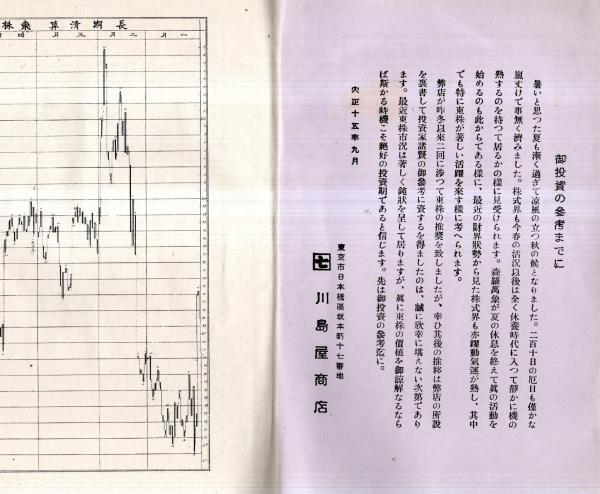 御投資の參考までに
暑いと思つた夏も漸く過ぎて凉風の立つ秋の候となりました。二百十日の厄日も僅かな
嵐丈けで事無く濟みました。株式界も今春の活況以後は全く休養時代に入つて靜かに機の
熟するのを待つて居るかの樣に見受けられます。森羅萬象が夏の休息を終えて眞の活動を
始めるのも此からである樣に、最近の財界狀勢から見た株式界も亦躍動氣運が熟し、其中
でも特に東株が著しい活躍を來す樣に考へられます。
弊店が昨冬以來二回に渉つて東株の推奬を致しましたが、幸ひ其後の推移は弊店の所說
を裏書して投資家諸賢の御參考に資するを得ましたのは、誠に欣幸に堪えない次第であり
ます。最近東株市況は著しく鈍狀を呈して居りますが、眞に東株の價値を御諒解なるなら
ば斯かる時機こそ絕好の投資期であると信じます。先は御投資の參考迄に。
大正十五年九月
東京市日本橋區坂本町十七番地
七 川島屋商店
長期淸算東株
一月
二月
三月